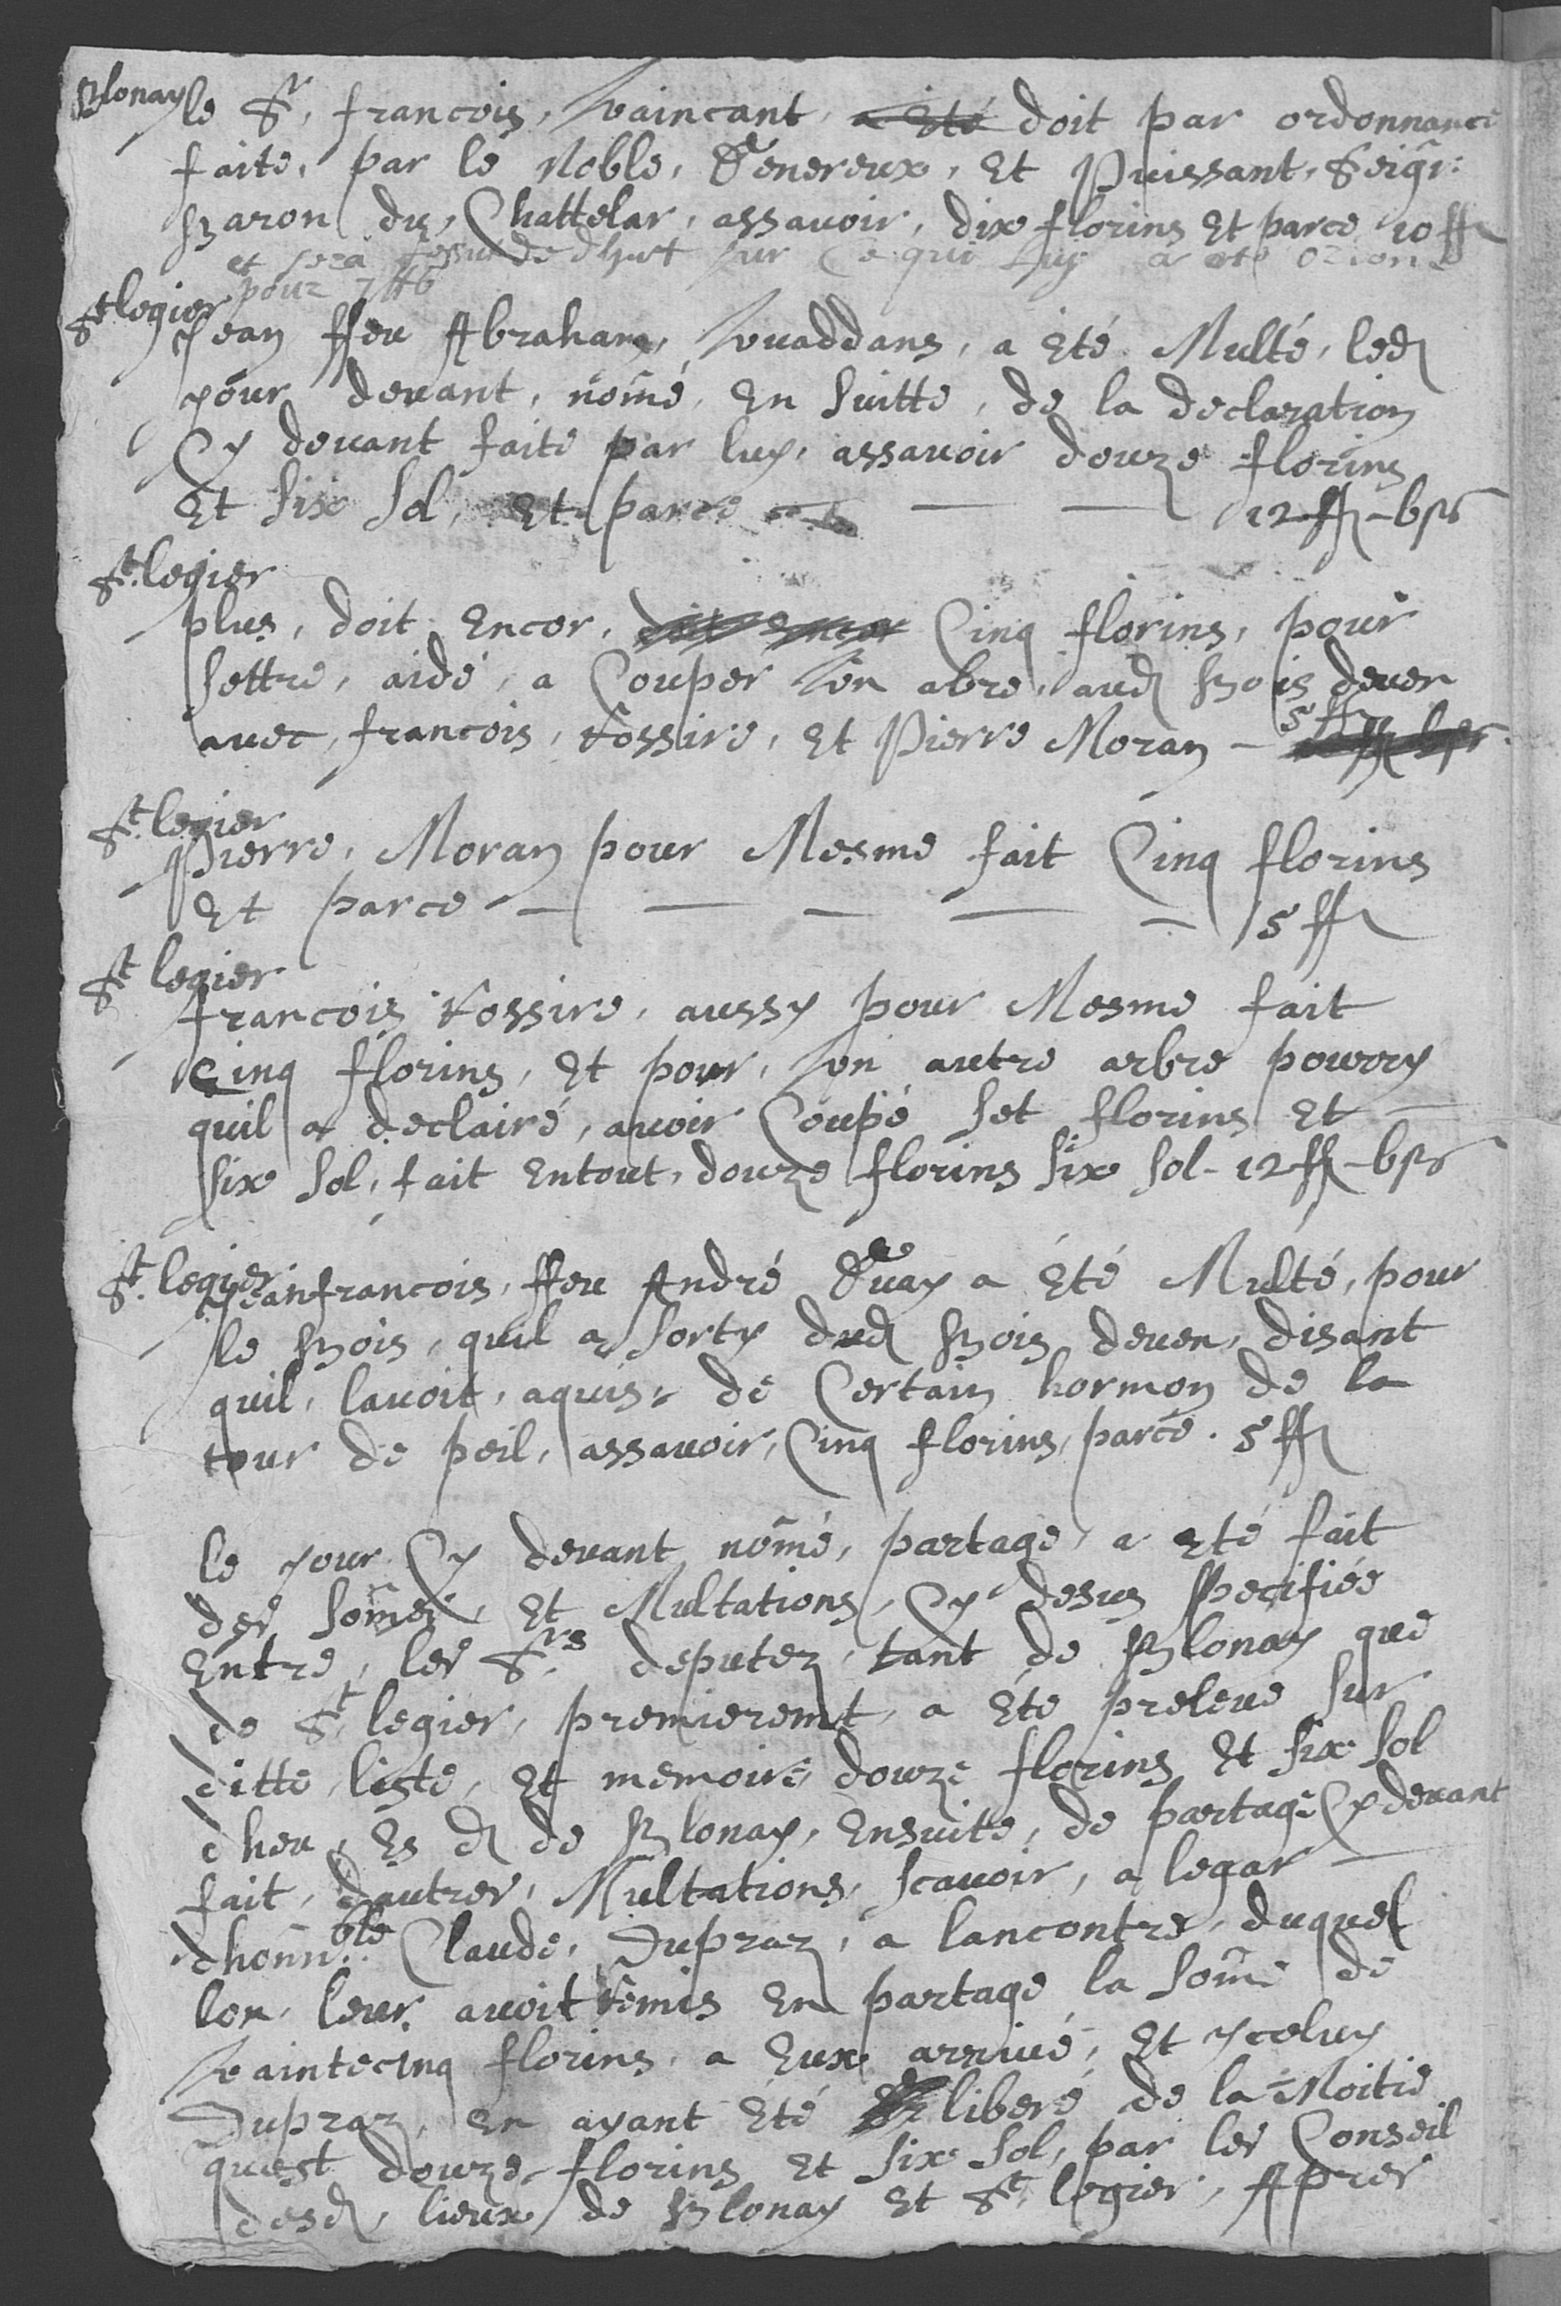 Blonay
le Sr. francois, vaincant, a Eté doit par ordonnance
faite, par le Noble, Genereux, Et Puissant, Seigr:
Baron du, Chattelar, assavoir, dix florins Et parce 10 ff
et sera de sur ce qui luy a eté
pour
St legier
Jean ffeu Abraham, vuaddans, a Eté Multé, led
your devant, nomé, En suitte, de la declaration
Cy devant faite par luy, assavoir douze florins
Et six sol, Et parce — — 12 ff - 6 ss
St. legier
plus, doit Encor, doit Encor Cinq florins, pour
settre, aidé, a Couper un abre, aud Bois deven
avec, francois, Rossire, Et Pierre Moran - 5 ff
St. legier
Pierre, Moran pour Mesme fait Cinq florins
Et parce — — — — — 5 ff
St legier
francois Rossire, aussy pour Mesme fait
Cinq florins, Et pour, un autre arbre pourry
quil a declairé, avoir Coupé set florins Et
six sol, fait Entout, douze florins six sol - 12 ff - 6 ss
St. legier
Jeanfrancois, ffeu André Guay a Été Multé, pour
le Bois, quil a sorty dud Bois deven, disant
quil, lavoit, aquis, de Certain hormon de la
tour de peil, assavoir, Cinq florins, parce. 5 ff
le your Cy devant nomé, partage, a Eté fait
des somes, Et Multations, Cy desus specifiée
Entre, les Srs deputez, tant de Blonay que
de St legier, premieremt, a Été prelevé sur
ditte liste, Et memoire, douze florins Et six sol
dheu, Es d de Blonay, Ensuite, de partage Cy devant
fait, dautres, Multations, scavoir, a legar
dhonnble Claude, Dupraz, a lancontre, duquel
lon, leur, avoit Remis En partage la some de
vaintecinq florins, a Eux arrivé, Et yceluy
Dupraz, en ayant Été liberé de la Moitie
quest douze florins Et six sol, par les Conseil
desd, lieux de Blonay Et St legier, Apres